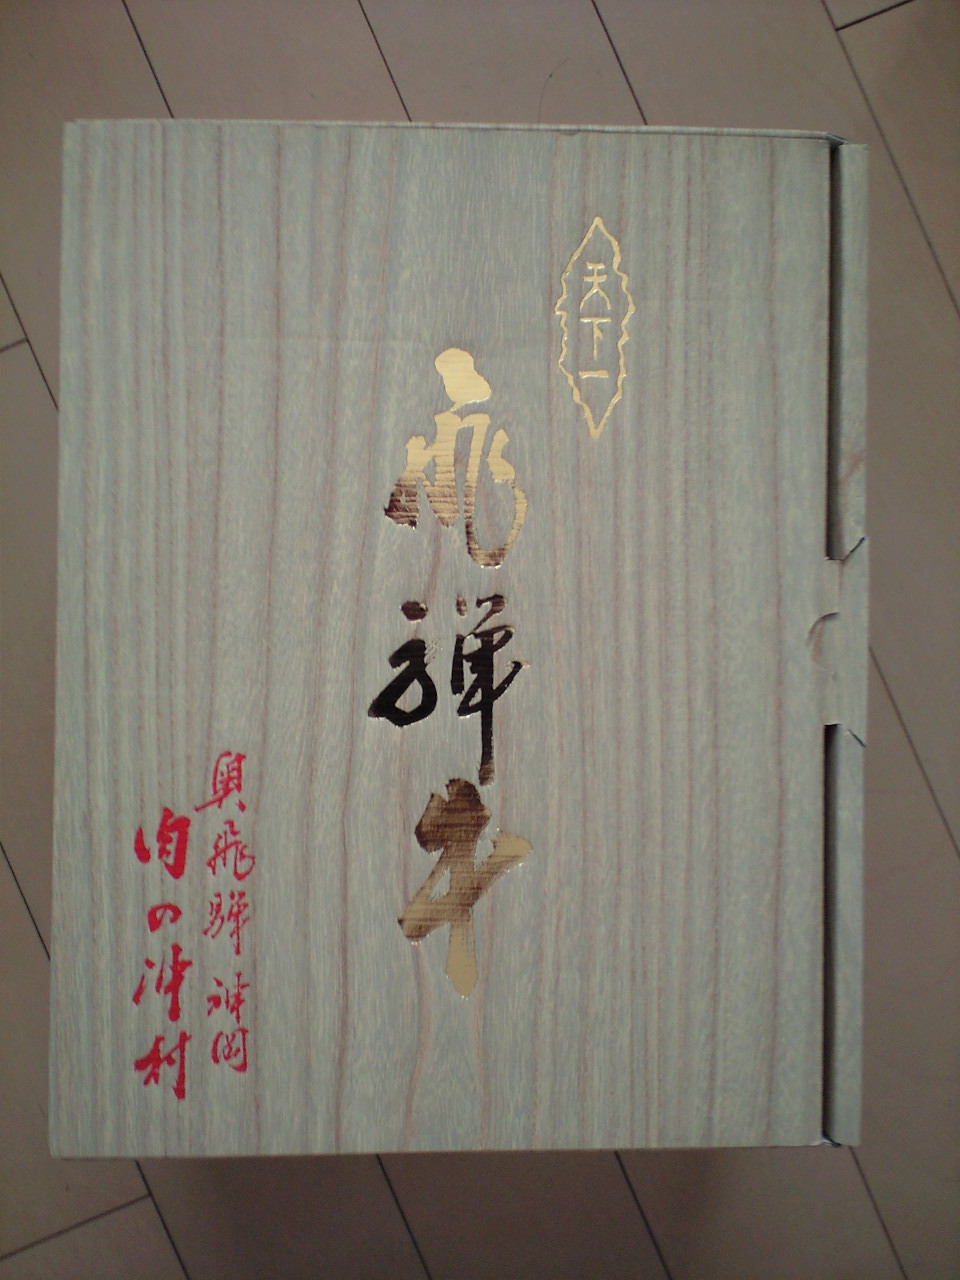 天下一
飛騨牛
奥飛騨神岡
肉の沖村